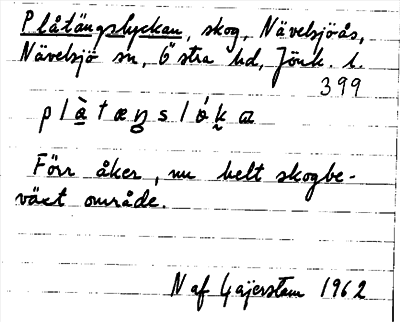 Plåtängslyckan, skog, Nävelsjöås,
Nävelsjö sn, Östra hd, Jönk. l.
399
p l à t æ ŋ s l ó k a
Förr åker, nu helt skogbe-
växt område.
N af Gajerstam 1962